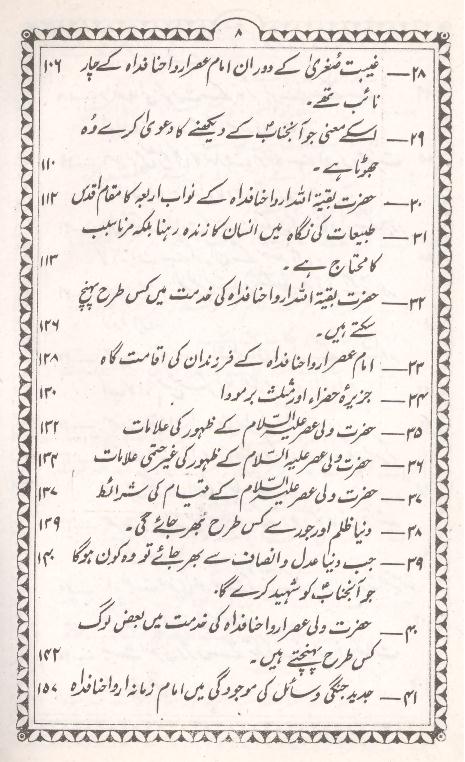 ۸
۲۸— غیبت صُغریٰ کے دوران امام عصر ارواحنا فداہ کے چار ۱۰۶
نائب تھے۔
۲۹— اسکے معنی جو آنجنابؑ کے دیکھنے کا دعویٰ کرے وُہ
جھوٹا ہے۔ ۱۱۰
۳۰— حضرت بقیۃ اللہ ارواحنا فداہ کے نواب اربعہ کا مقام اقدس ۱۱۲
۳۱— طبیعات کی نگاہ میں انسان کا زندہ رہنا بلکہ مرنا سبب
کا محتاج ہے۔ ۱۱۳
۳۲— حضرت بقیۃ اللہ ارواحنا فداہ کی خدمت میں کس طرح پہنچ
سکتے ہیں۔ ۱۲۶
۳۳— امام عصر ارواحنا فداہ کے فرزندان کی اقامت گاہ ۱۲۸
۳۴— جزیرۂ خضراء اور مثلث برمودا ۱۳۰
۳۵— حضرت ولی عصر علیہ السّلام کے ظہور کی علامات ۱۳۲
۳۶— حضرت ولی عصر علیہ السّلام کے ظہور کی غیر حتمی علامات ۱۳۴
۳۷— حضرت ولی عصر علیہ السّلام کے قیام کی شرائط ۱۳۷
۳۸— دنیا ظلم اور جور سے کس طرح بھر جائے گی۔ ۱۳۹
۳۹— جب دنیا عدل و انصاف سے بھر جائے تو وہ کون ہوگا ۱۴۰
جو آنجنابؑ کو شہید کرے گا۔
۴۰— حضرت ولی عصر ارواحنا فداہ کی خدمت میں بعض لوگ
کس طرح پہنچتے ہیں۔ ۱۴۲
۴۱— جدید جنگی وسائل کی موجودگی میں امام زمانہ ارواحنا فداہ ۱۵۷